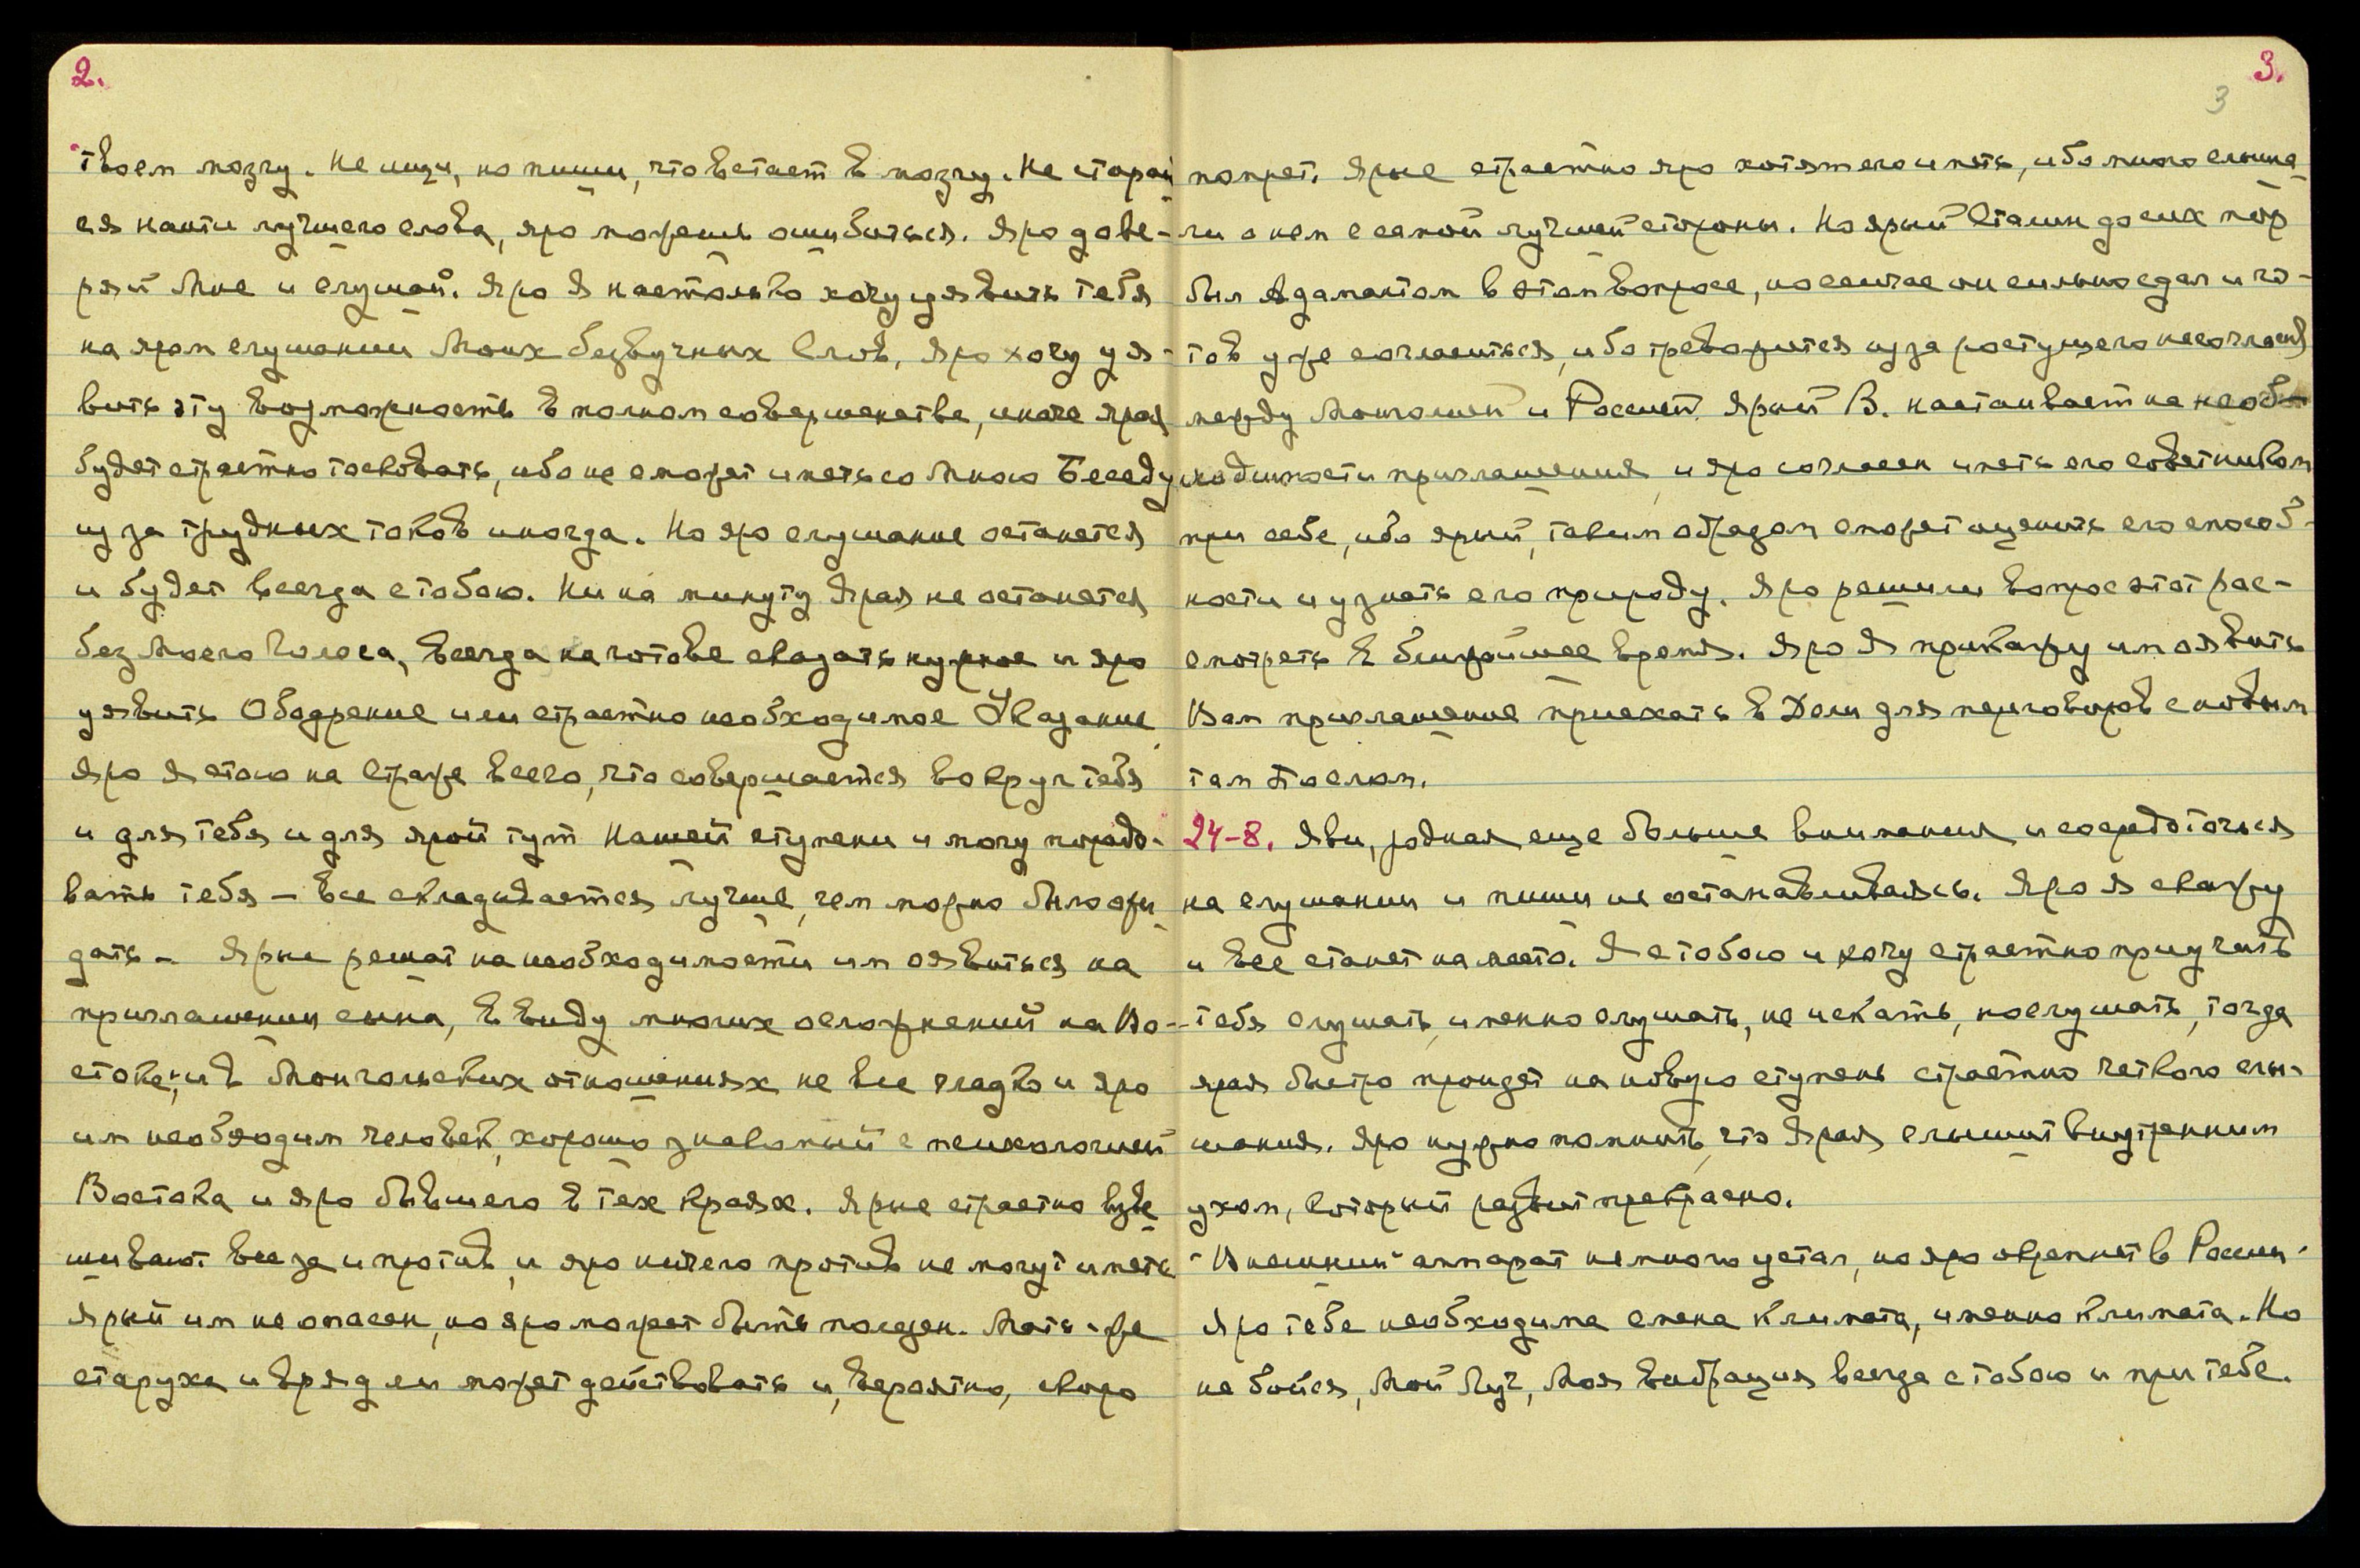 2.
твоем мозгу. Не ищи, но пиши, что встает в мозгу. Не старай-
ся найти лучшего слова, яро можешь ошибиться. Яро дове-
ряй Мне и слушай. Яро Я настолько хочу уявить тебя
на яром слушании Моих беззвучных Слов, яро хочу уя-
вить эту возможность в полном совершенстве, иначе ярая
будет страстно тосковать, ибо не сможет иметь со Мною Беседу
из за трудных токов иногда. Но яро слушание останется
и будет всегда с тобою. Ни на минуту Ярая не останется
без Моего Голоса, всегда на готове сказать нужное и яро
уявить Ободрение или страстно необходимое Указание
Яро Я стою на Страже всего, что совершается вокруг тебя
и для тебя и для ярой тут Нашей ступени и могу порадо-
вать тебя — все складывается лучше, чем можно было ожи-
дать — Ярые решат на необходимости им оявиться на
приглашении сына, в виду многих осложнений на Во-
стоке; и в Монгольских отношениях не все гладко и яро
им необходим человек, хорошо знакомый с психологией
Востока и яро бывшего в тех краях. Ярые страстно взве-
шивают все за и против, и яро ничего против не могут иметь
Ярый им не опасен, но яро может быть полезен. Мать-же
старуха и вряд ли может действовать и, вероятно, скоро
3.
3
помрет. Ярые страстно яро хотят его иметь, ибо много слыша-
ли о нем с самой лучшей стороны. Но ярый Сталин до сих пор
был Адамантом в этом вопросе, но сейчас он сильно сдал и го-
тов уже согласиться, ибо тревожится из за растущего несогласия
между Монголией и Россией. Ярый В. настаивает на необ-
ходимости приглашения, и яро согласен иметь его советником
при себе, ибо ярый, таким образом сможет оценить его способ-
ности и узнать его природу. Яро решили вопрос этот рас-
смотреть в ближайшее время. Яро Я прикажу им оявить
Вам приглашение приехать в Дели для переговоров с новым
там Послом.
24-8. Яви, родная еще больше внимания и сосредоточься
на слушании и пиши не останавливаясь. Яро Я скажу
и все станет на место. Я с тобою и хочу страстно приучить
тебя слушать, именно слушать, не искать, но слушать, тогда
ярая быстро пройдет на новую ступень страстно четкого слы-
шания. Яро нужно помнить, что Ярая слышит внутренним
ухом, который развит прекрасно.
"Внешний" аппарат немного устал, но яро окрепнет в России.
Яро тебе необходима смена климата, именно климата. Но
не бойся, Мой Луч, Моя вибрация всегда с тобою и при тебе.